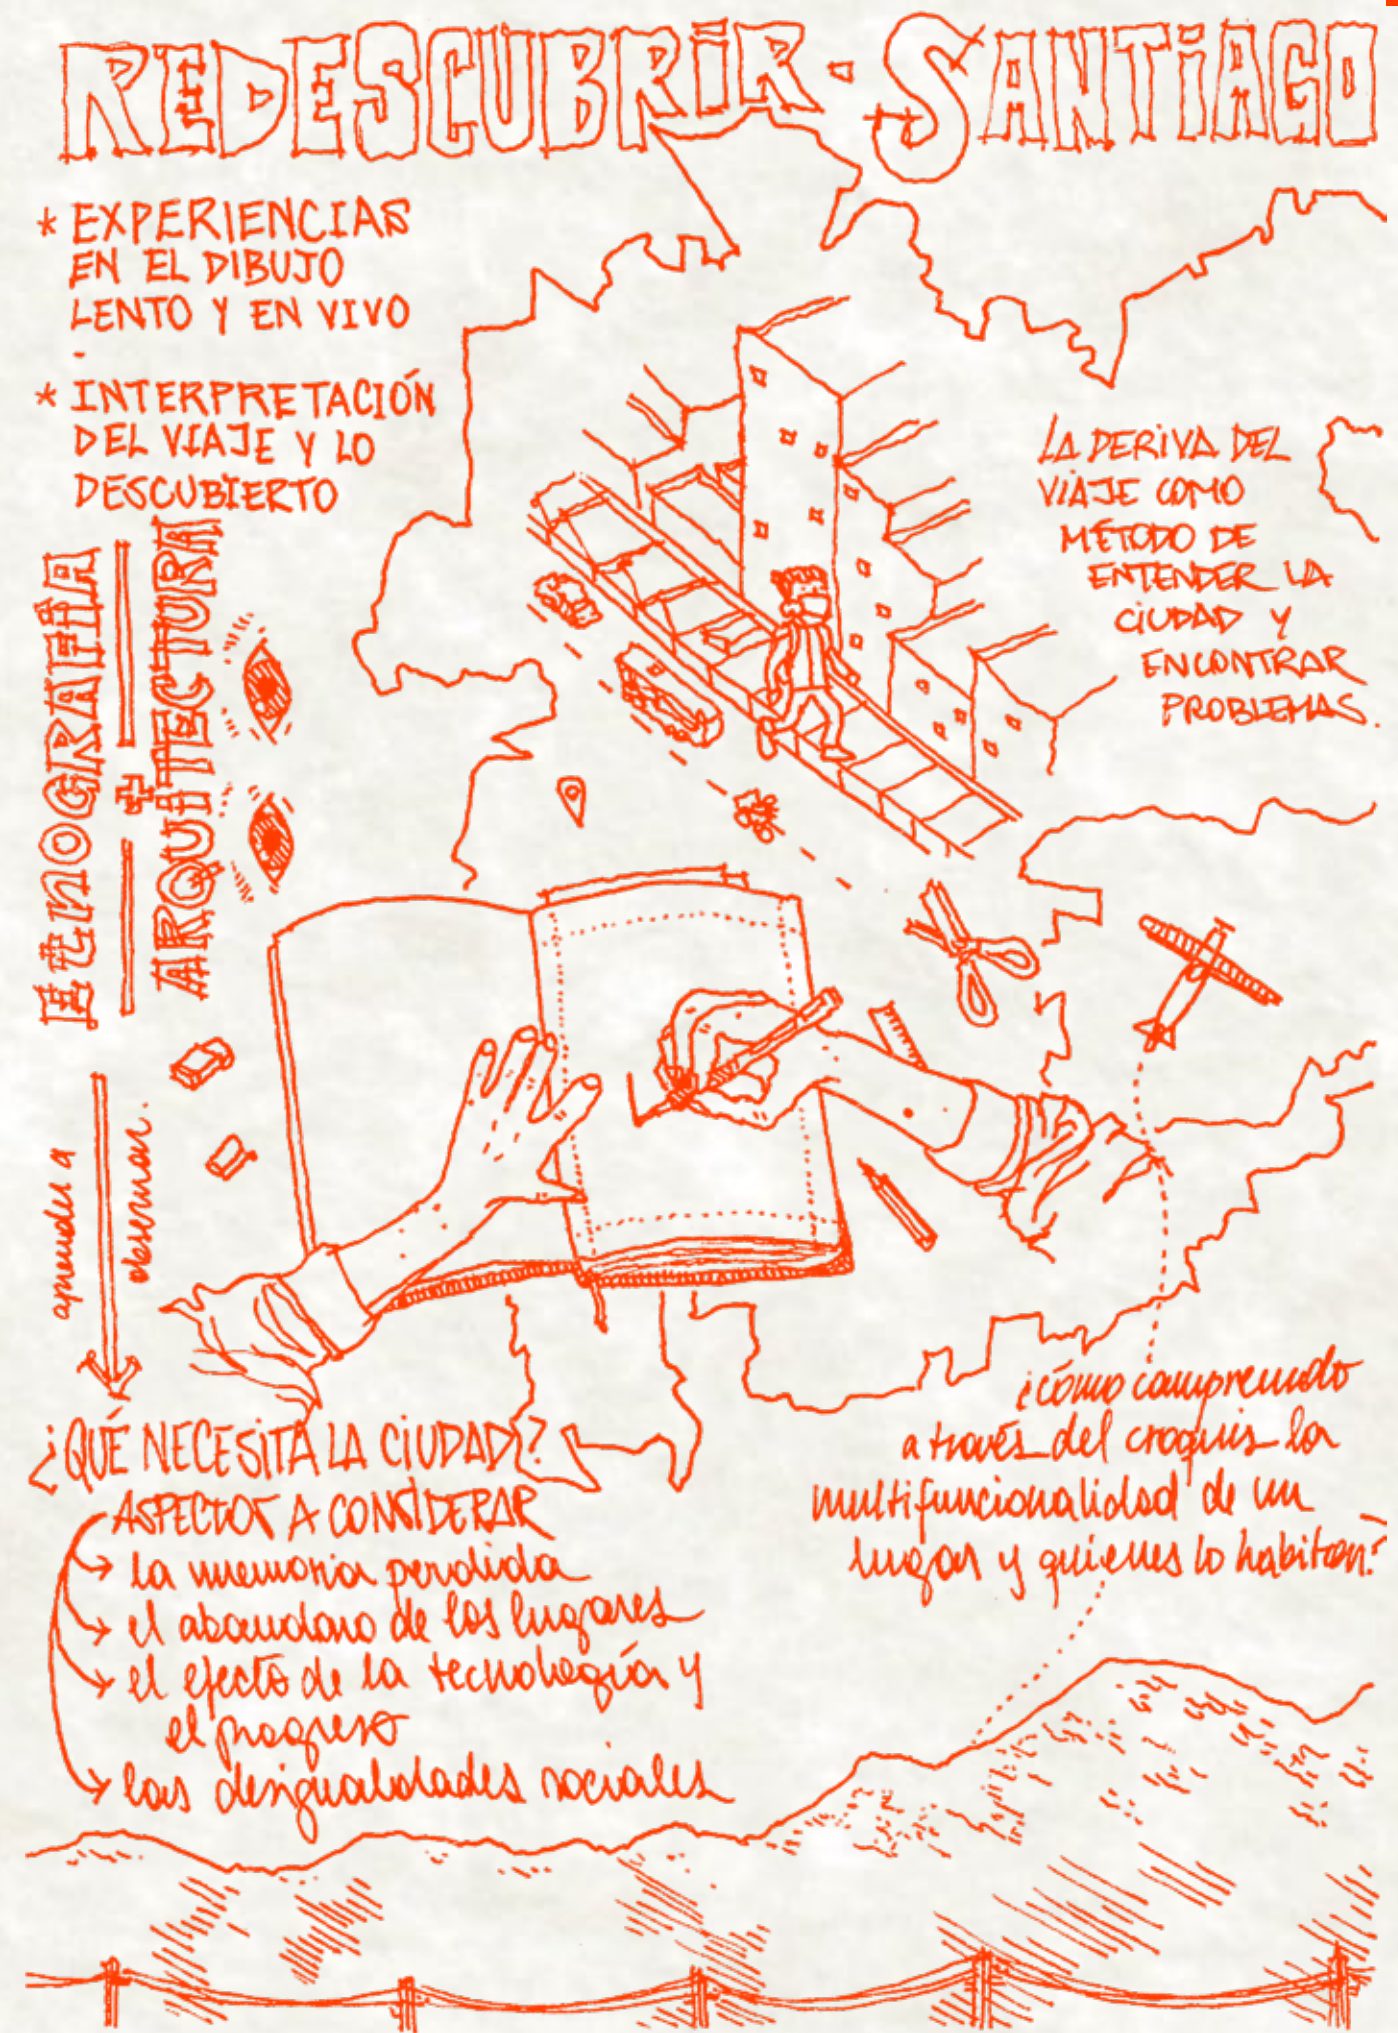 REDESCUBRIR · SANTIAGO
* EXPERIENCIAS
EN EL DIBUJO
LENTO Y EN VIVO
* INTERPRETACIÓN
DEL VIAJE Y LO
DESCUBIERTO
LA DERIVA DEL
VIAJE COMO
MÉTODO DE
ENTENDER LA
CIUDAD Y
ENCONTRAR
PROBLEMAS.
ETNOGRAFÍA
+
ARQUITECTURA
aprender a
observar.
¿QUÉ NECESITA LA CIUDAD?
ASPECTOS A CONSIDERAR
→ la memoria perdida
→ el abandono de los lugares
→ el efecto de la tecnología y
el progreso
→ las desigualdades sociales
¿cómo comprendo
a través del croquis la
multifuncionalidad de un
lugar y quiénes lo habitan?